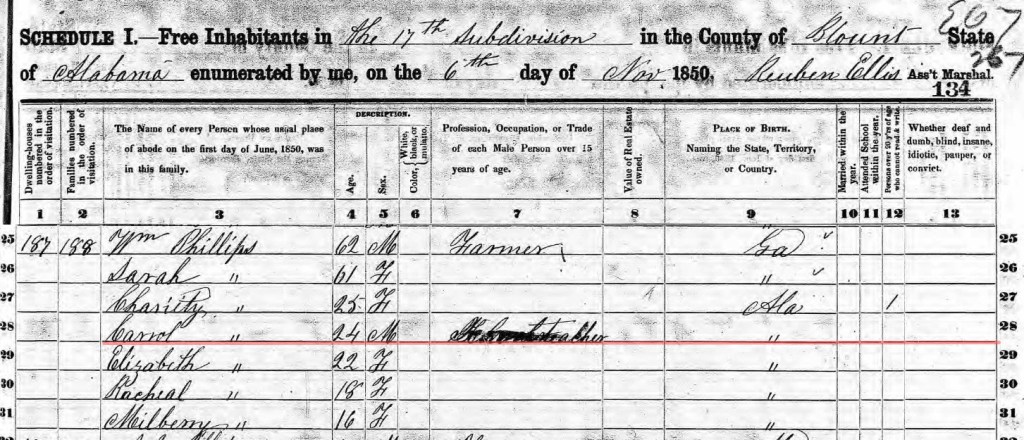 SCHEDULE I.—Free Inhabitants in the 17th Subdivision in the County of Blount State
of Alabama enumerated by me, on the 6th day of Nov 1850. Reuben Ellis Ass't Marshal.
267
134
Dwelling-houses numbered in the order of visitation.
Families numbered in the order of visitation.
The Name of every Person whose usual place of abode on the first day of June, 1850, was in this family.
DESCRIPTION.
Age.
Sex.
Color, White, black, or mulatto.
Profession, Occupation, or Trade of each Male Person over 15 years of age.
Value of Real Estate owned.
PLACE OF BIRTH. Naming the State, Territory, or Country.
Married within the year.
Attended School within the year.
Persons over 20 y'rs of age who cannot read & write.
Whether deaf and dumb, blind, insane, idiotic, pauper, or convict.
1 2 3 4 5 6 7 8 9 10 11 12 13
25 187 188 Wm Phillips 62 M Farmer Ga 25
26 Sarah " 61 F " 26
27 Charity " 25 F Ala 1 27
28 Carrol " 24 M " 28
29 Elizabeth " 22 F " 29
30 Racheal " 18 F " 30
31 Milberry " 16 F " 31